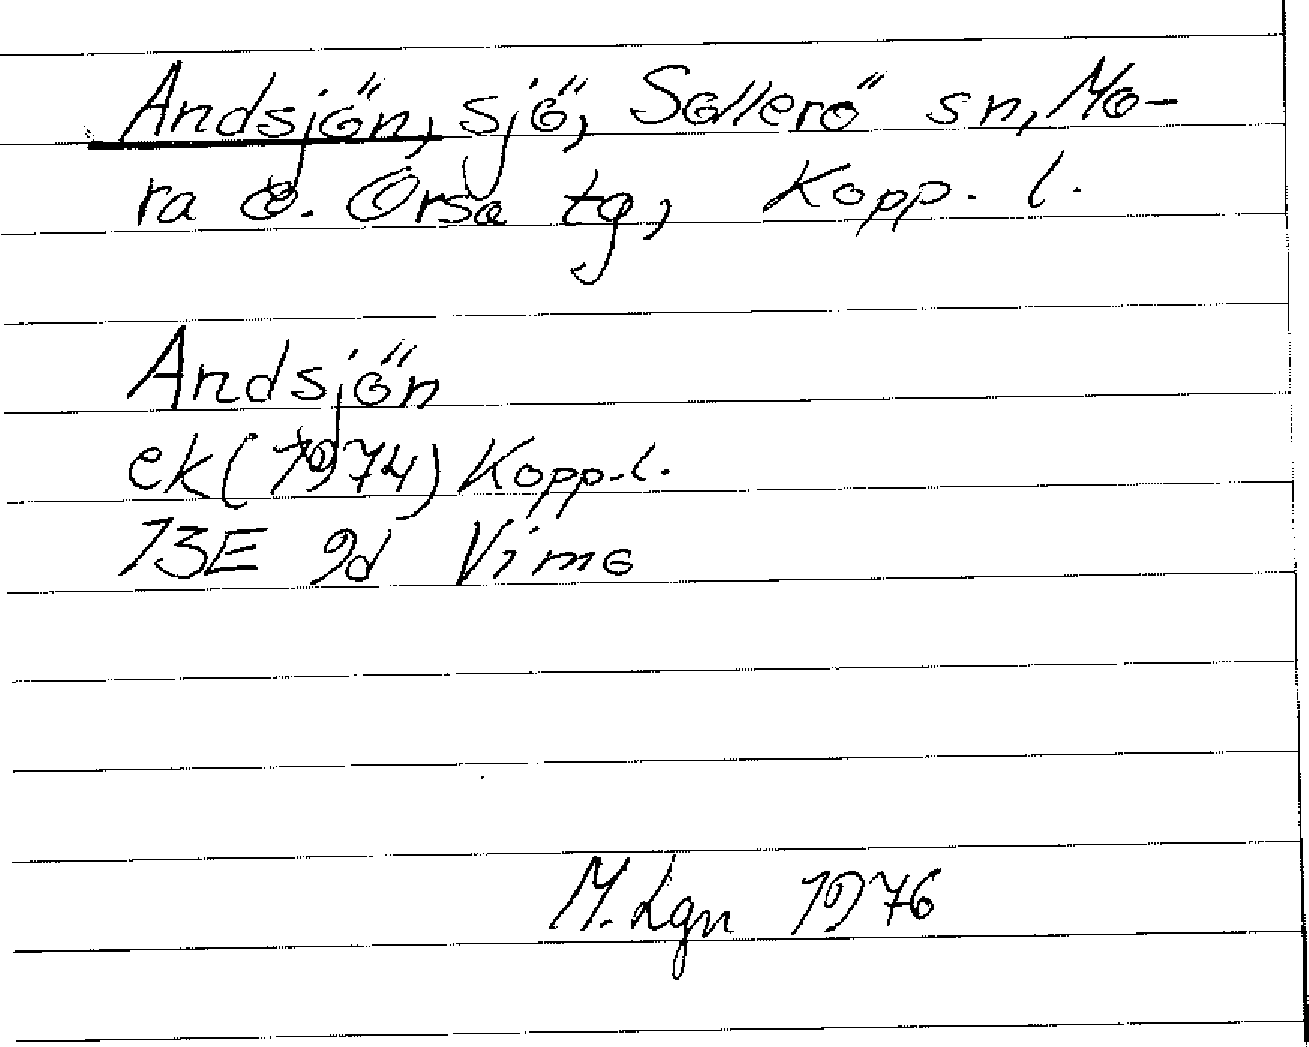 Andsjön, sjö, Sollerö sn, Mo-
ra o. Orsa tg, Kopp. l.
Andsjön
ek (1974) Kopp. l.
13E 9d Vimo
M. Lgn 1976